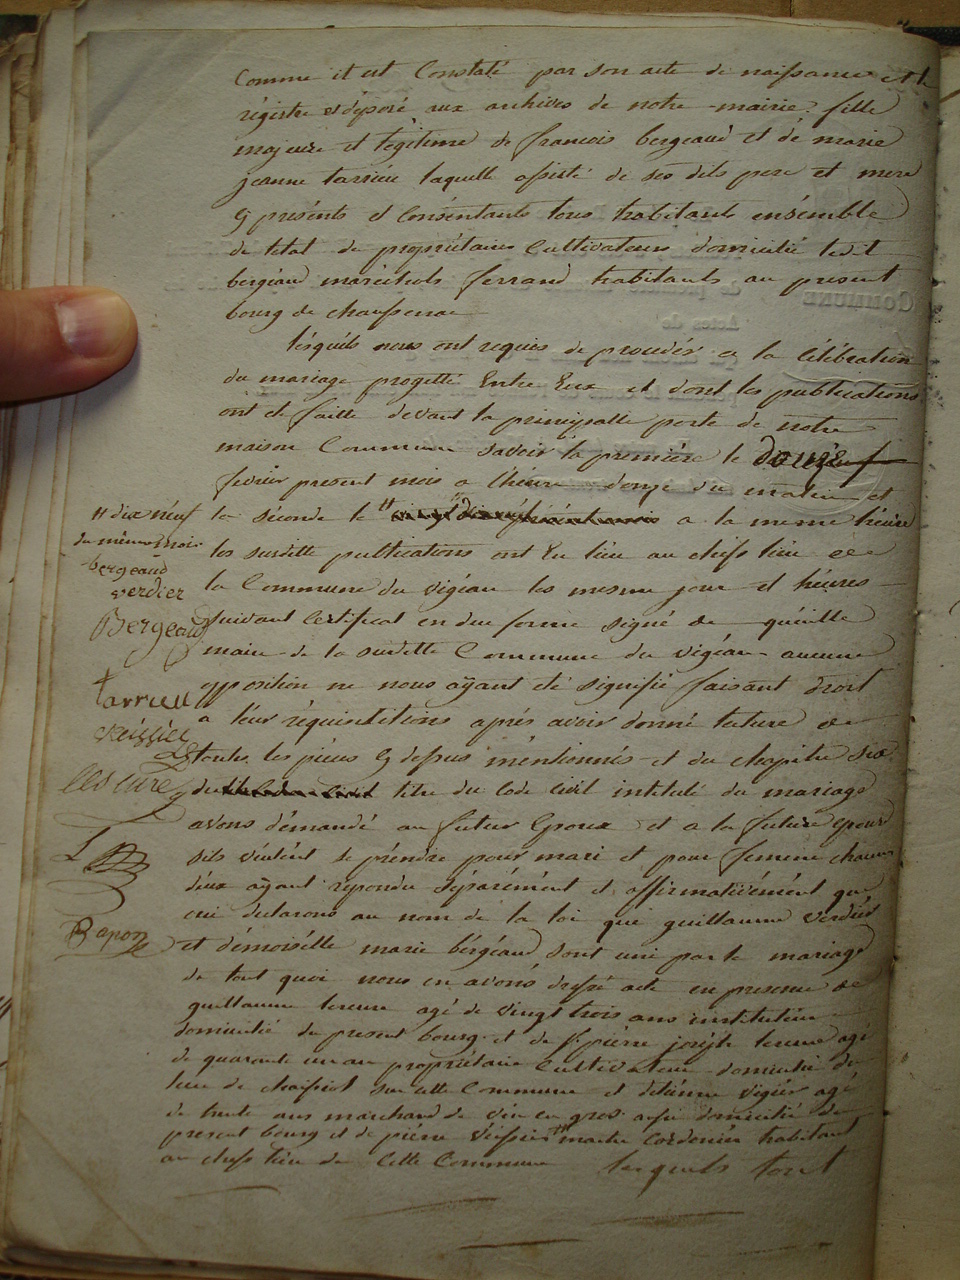 Comme il est Constaté par son acte de naissance et le
régistre déposé aux archives de notre mairie, fille
majeure et légitime de francois bergeaud et de marie
jeanne tarrieu laquelle assisté de ses dits pere et mere
cy présents et Consentants tous habitants ensemble
de letat de propriétaires Cultivateurs domicilié ledit
bergeaud maréchals ferrand habitants au present
bourg de chaussenac
lesquels nous ont requis de procéder a la Célébration
du mariage progetté Entre Eux et dont les publications
ont été faitte devant la principalle porte de notre
maison Commune savoir la première le douze
fevrier present mois a l'heure donze du matin et
la séconde le a la meme heure
les susditte publications ont Eu lieu au cheflieu de
la Commune du vigéan les mesme jour et héures
suivant Certificat en due forme signé de
maire de la susditte Commune du vigéan aucune
opposition ne nous ayant été signifié faisant droit
a leur réquisititions aprés avoir donné lecture de
toutes les piéces cy dessus mentionnés et du chapitre six
du titre du Code Civil intitulé du mariage
avons démandé au futur Epoux et a la future epouse
sils véulent se prendre pour mari et pour femme chacun
déux ayant repondu séparément et affirmativément que
oui declarons au nom de la loi que guillaume verdier
et démoisélle marie bérgéaud sont unie par le mariage
de tout quoi nous en avons dréssé acte en presence de
guillaume agé de vingt trois ans instituteur
domicilié du present bourg et de pierre joseph agé
de quarante un an propriétaire Cultivateur domicilié du
lieu de sur cette Commune et détiénne vigiér agé
de trente ans marchand de vin en gros aussi domicilié du
present bourg et de piérre véissier maitre Cordonier habitant
au chéflieu de Cette Commune lesquels tout
" dix neuf
du même mois
bergeaud
verdier
Bergeaud
tarrieu
veissier
lescure
Rapon